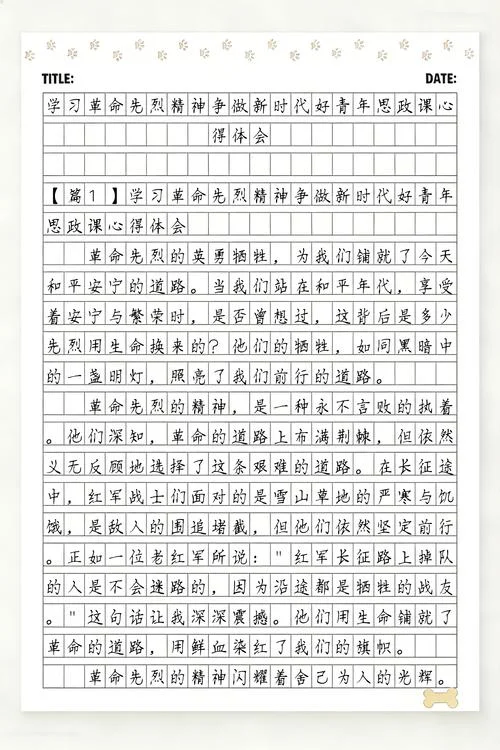 TITLE: DATE:
学习革命先烈精神争做新时代好青年思政课心
得体会
【篇1】学习革命先烈精神争做新时代好青年
思政课心得体会
革命先烈的英勇牺牲，为我们铺就了今天
和平安宁的道路。当我们站在和平年代，享受
着安宁与繁荣时，是否曾想过，这背后是多少
先烈用生命换来的？他们的牺牲，如同黑暗中
的一盏明灯，照亮了我们前行的道路。
革命先烈的精神，是一种永不言败的执着
。他们深知，革命的道路上布满荆棘，但依然
义无反顾地选择了这条艰难的道路。在长征途
中，红军战士们面对的是雪山草地的严寒与饥
饿，是敌人的围追堵截，但他们依然坚定前行
。正如一位老红军所说："红军长征路上掉队
的人是不会迷路的，因为沿途都是牺牲的战友
。"这句话让我深深震撼。他们用生命铺就了
革命的道路，用鲜血染红了我们的旗帜。
革命先烈的精神闪耀着舍己为人的光辉。